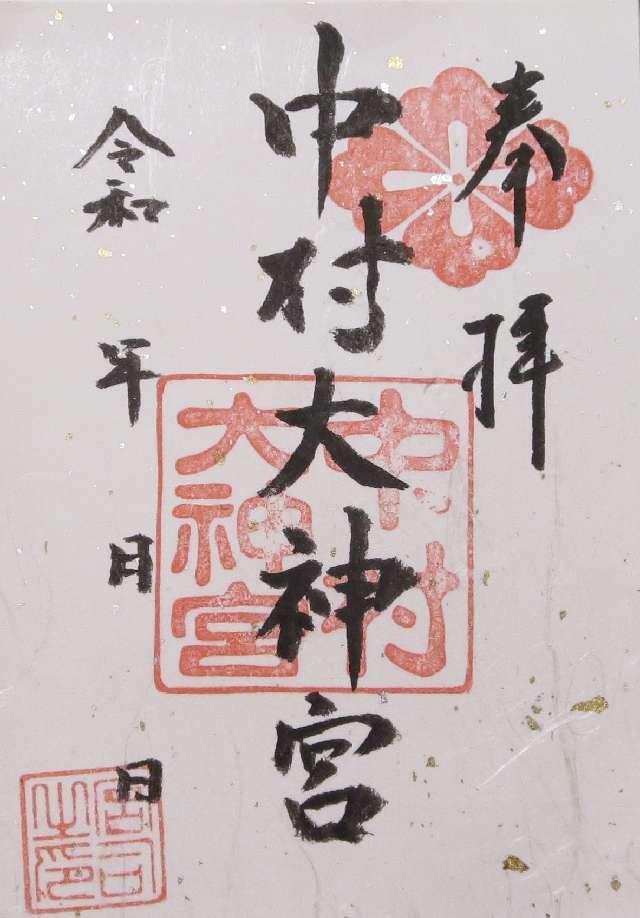 奉拝
中村大神宮
中村
大神宮
令和 年 月 日
宮司
之印